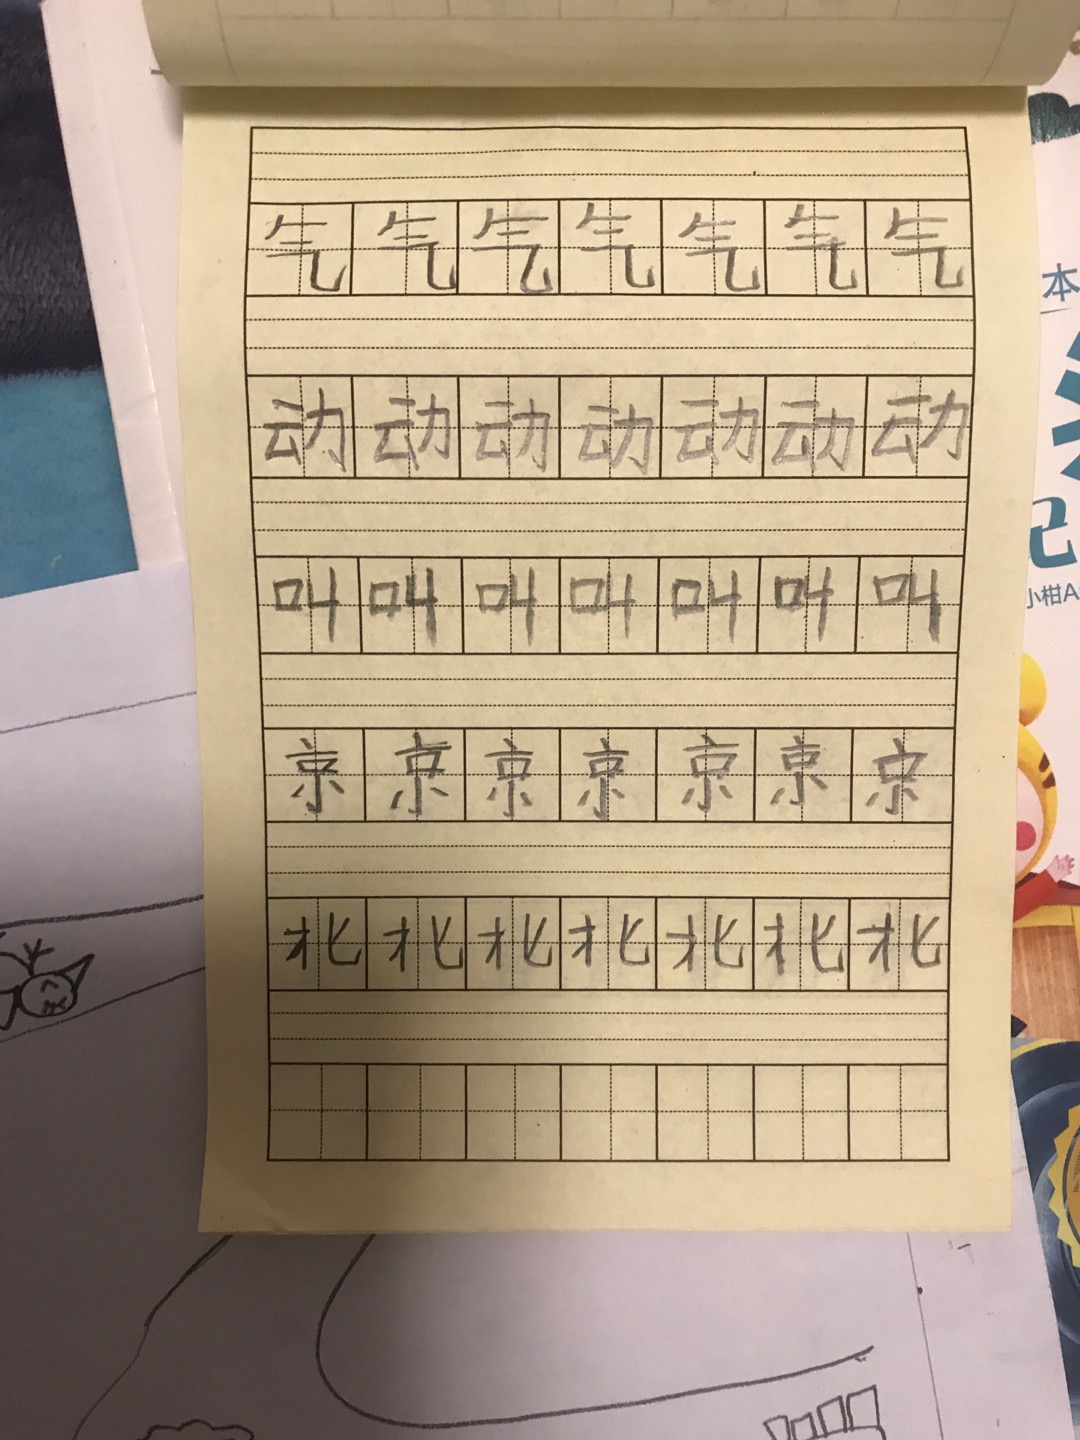 气 气 气 气 气 气 气
动 动 动 动 动 动 动
叫 叫 叫 叫 叫 叫 叫
京 京 京 京 京 京 京
北 北 北 北 北 北 北
本
记
小柑A